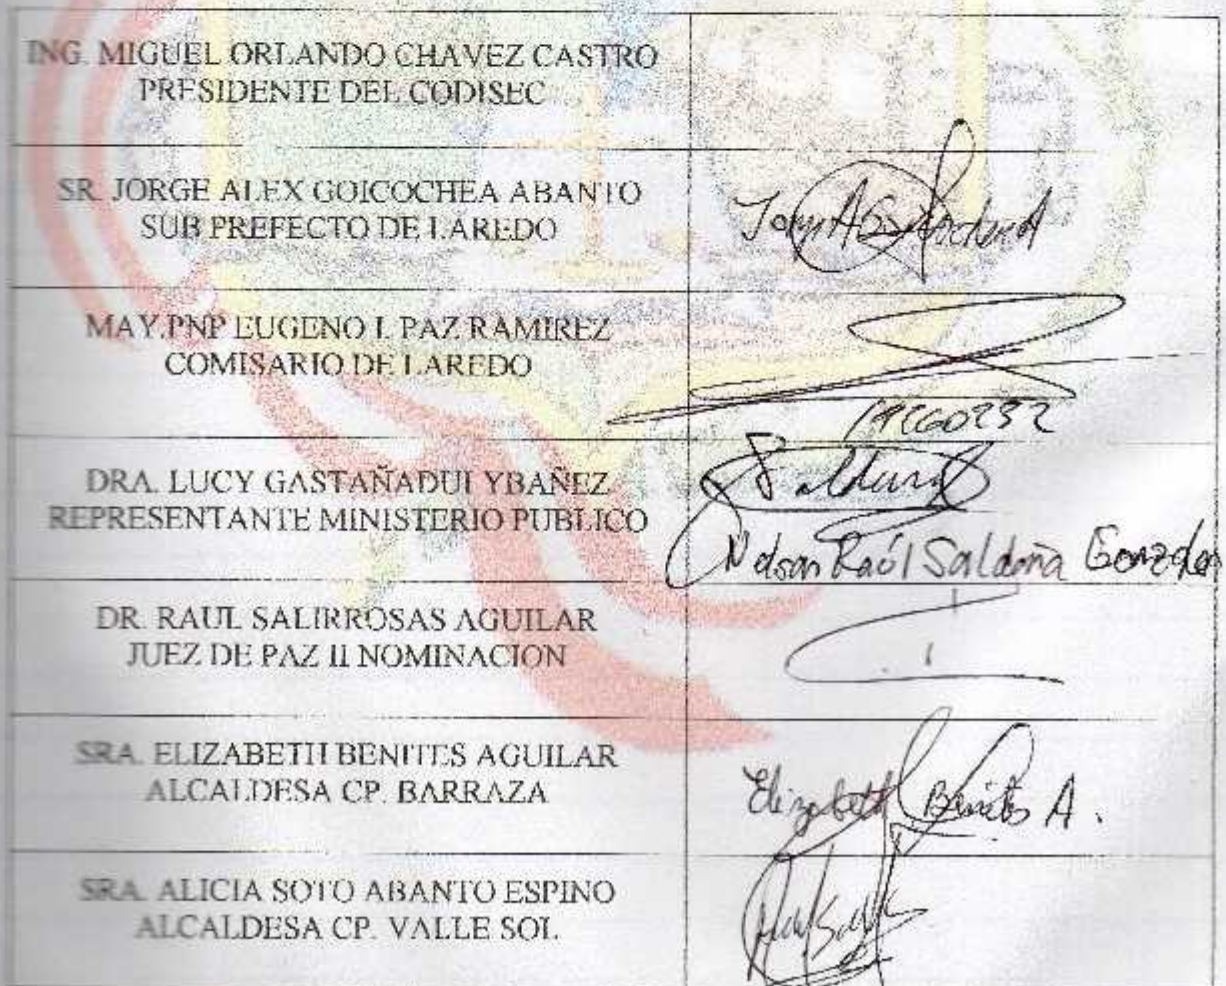 ING. MIGUEL ORLANDO CHAVEZ CASTRO
PRESIDENTE DEL CODISEC
SR. JORGE ALEX GOICOCHEA ABANTO
SUB PREFECTO DE LAREDO
MAY.PNP EUGENO I. PAZ RAMIREZ
COMISARIO DE LAREDO
DRA. LUCY GASTAÑADUI YBAÑEZ
REPRESENTANTE MINISTERIO PUBLICO
Nelson Raúl Saldaña Gonzales
DR. RAUL SALIRROSAS AGUILAR
JUEZ DE PAZ II NOMINACION
SRA. ELIZABETH BENITES AGUILAR
ALCALDESA CP. BARRAZA
Elizabeth Benites A.
SRA. ALICIA SOTO ABANTO ESPINO
ALCALDESA CP. VALLE SOL